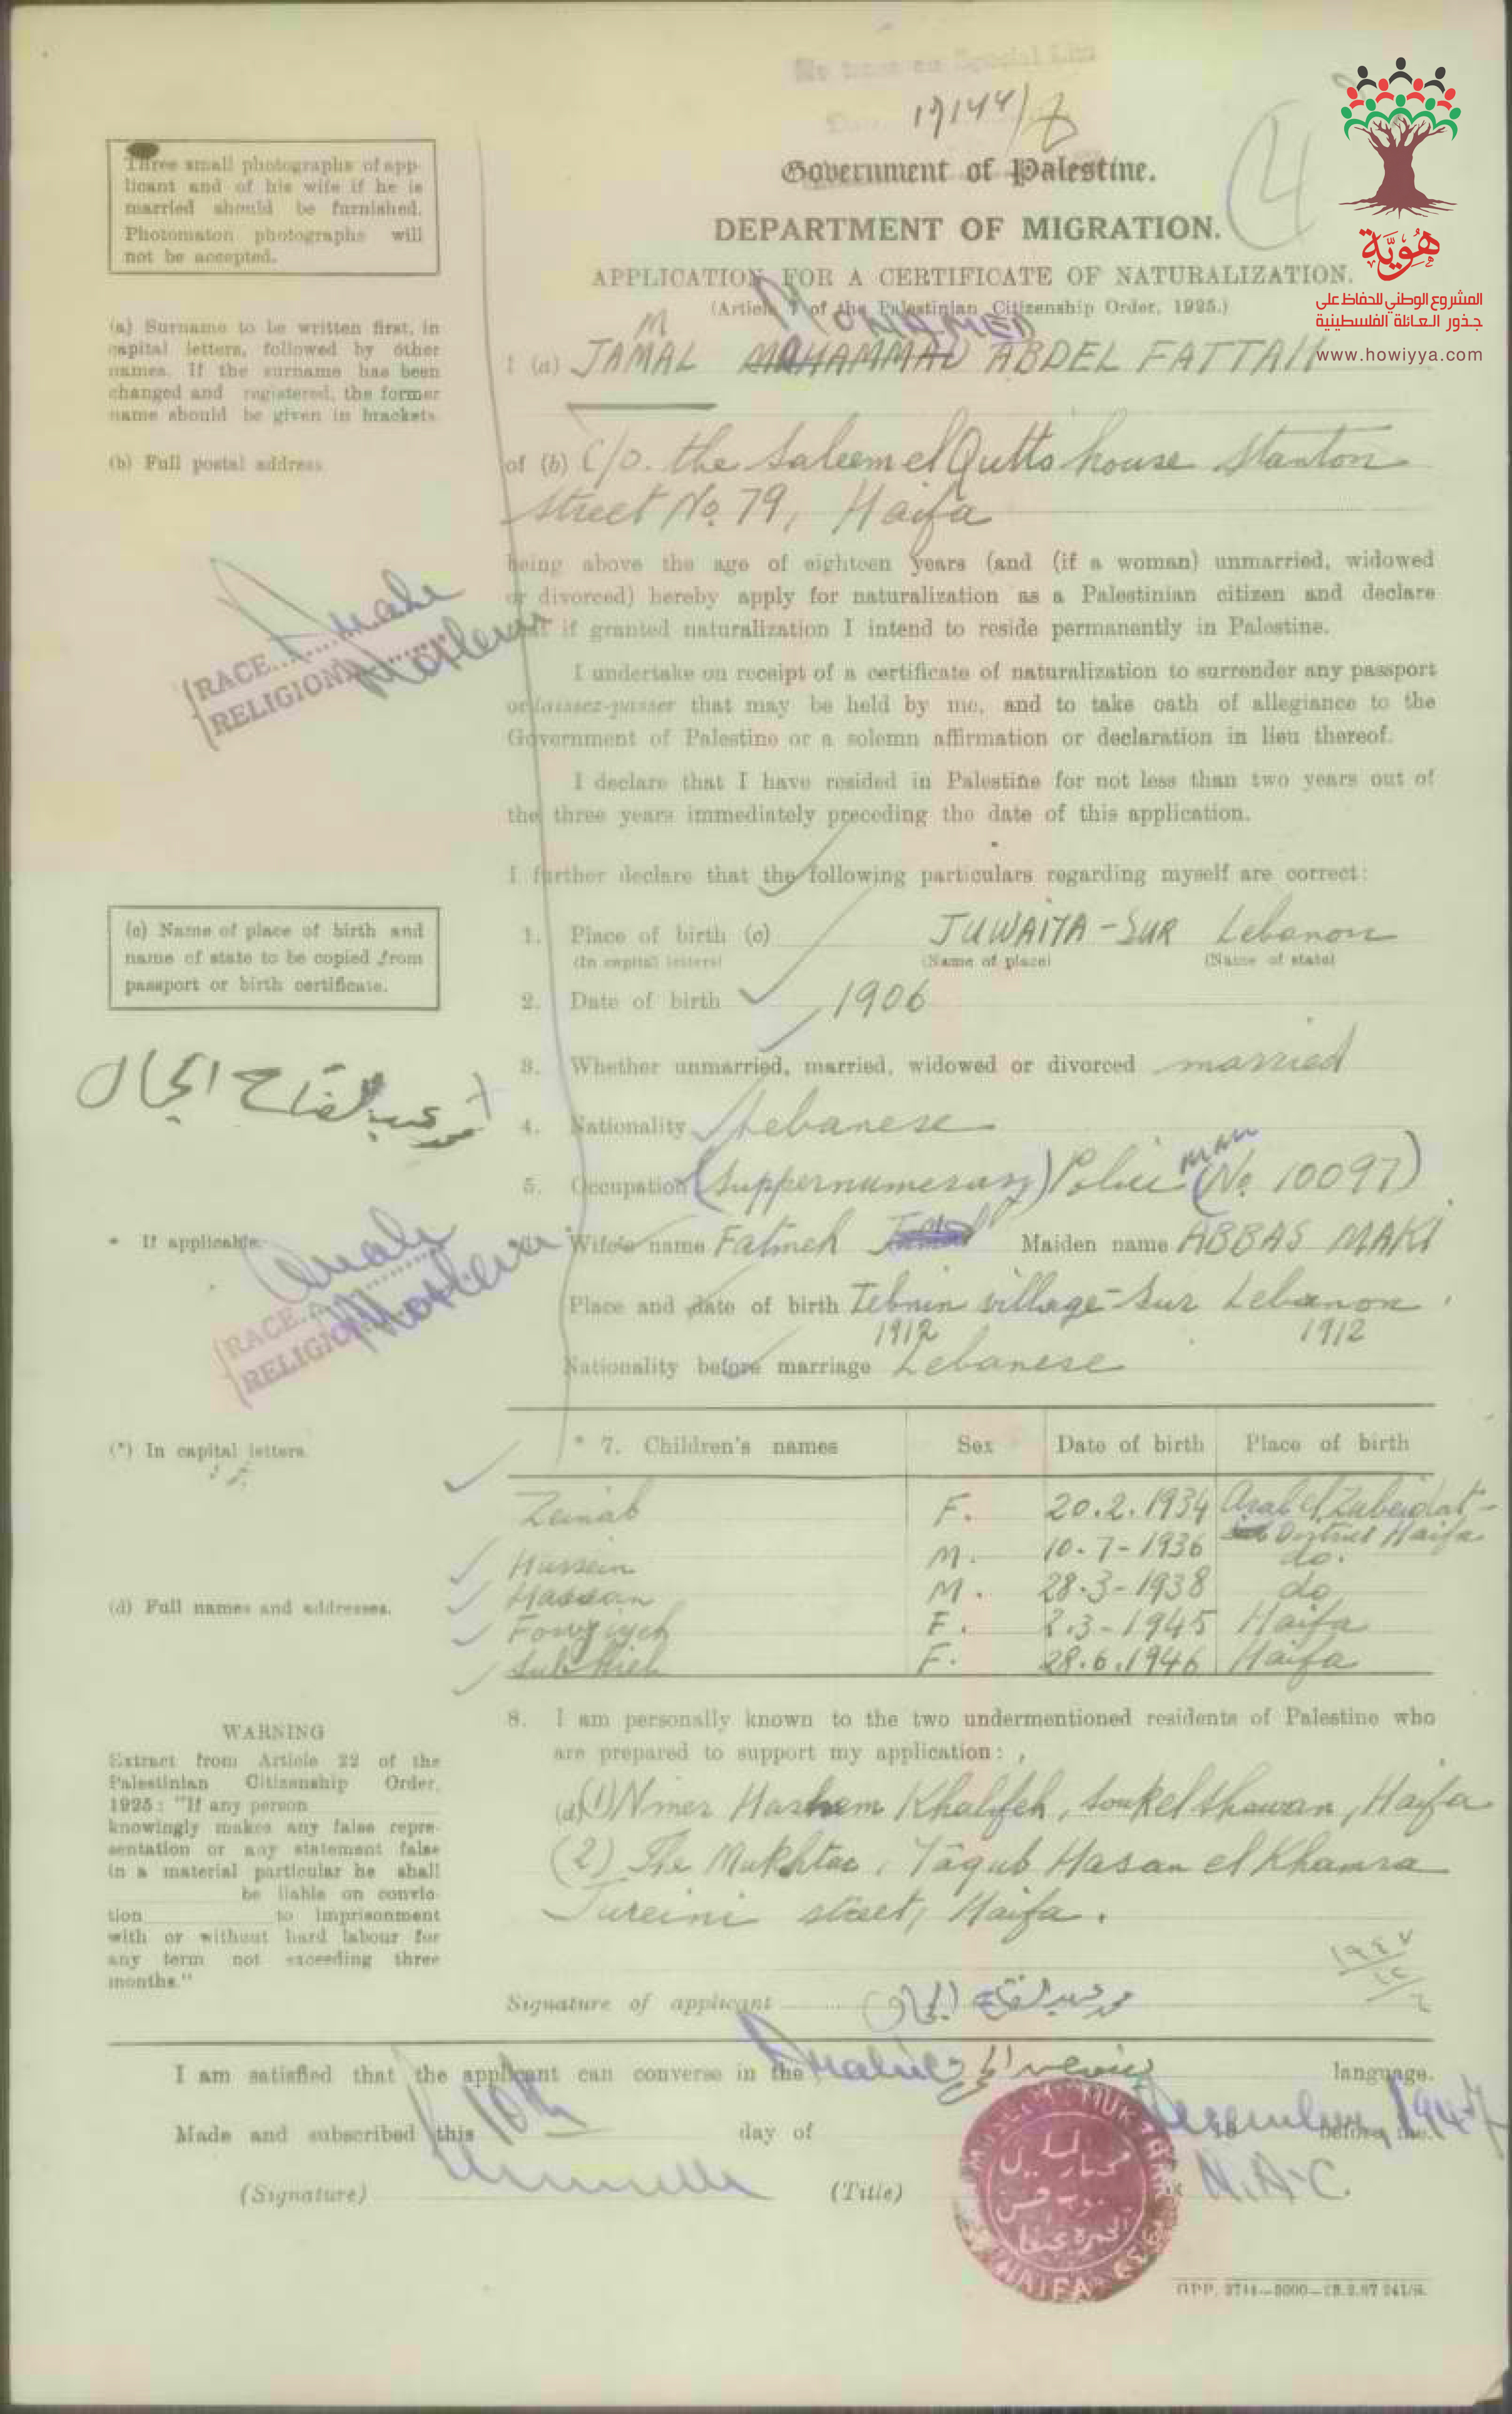 17144/
4
Government of Palestine.
DEPARTMENT OF MIGRATION.
APPLICATION FOR A CERTIFICATE OF NATURALIZATION.
(Article 7 of the Palestinian Citizenship Order, 1925.)
هُوِيَّة
المشروع الوطني للحفاظ على
جذور العائلة الفلسطينية
www.howiyya.com
Three small photographs of app-
licant and of his wife if he is
married should be furnished.
Photomaton photographs will
not be accepted.
(a) Surname to be written first, in
capital letters, followed by other
names. If the surname has been
changed and registered, the former
name should be given in brackets.
M MOHAMED
I (a) JAMAL MAHAMMAD ABDEL FATTAH
(b) Full postal address
of (b) c/o. the Saleem el Qutts house Stanton
Street No. 79, Haifa
being above the age of eighteen years (and (if a woman) unmarried, widowed
or divorced) hereby apply for naturalization as a Palestinian citizen and declare
that if granted naturalization I intend to reside permanently in Palestine.
RACE Arab
RELIGION Moslem
I undertake on receipt of a certificate of naturalization to surrender any passport
or laissez-passer that may be held by me, and to take oath of allegiance to the
Government of Palestine or a solemn affirmation or declaration in lieu thereof.
I declare that I have resided in Palestine for not less than two years out of
the three years immediately preceding the date of this application.
I further declare that the following particulars regarding myself are correct:
(c) Name of place of birth and
name of state to be copied from
passport or birth certificate.
1. Place of birth (c) JUWAIYA - SUR Lebanon
(In capital letters) (Name of place) (Name of state)
2. Date of birth 1906
3. Whether unmarried, married, widowed or divorced married
محمد عبد الفتاح الجمال
4. Nationality Lebanese
5. Occupation (Suppernumerary) Police man (No 10097)
* If applicable.
*6. Wife's name Fatmeh Maiden name ABBAS MAKI
Place and date of birth Tebnin village - Sur Lebanon.
1912 1912
RACE Arab
RELIGION Moslem
Nationality before marriage Lebanese
(*) In capital letters.
* 7. Children's names Sex Date of birth Place of birth
Zeinab F. 20.2.1934 Arab el Zubeidat -
District Haifa
Hussein M. 10-7-1936 do.
Hassan M. 28-3-1938 do
Fowziyeh F. 2.3-1945 Haifa
Subhieh F. 28.6.1946 Haifa
(d) Full names and addresses.
8. I am personally known to the two undermentioned residents of Palestine who
are prepared to support my application:
(d) (1) Nimer Hashem Khalifeh, Souk el Shawan, Haifa
(2) The Mukhtar, Yaqub Hasan el Khamra
Jureini street, Haifa.
WARNING
Extract from Article 22 of the
Palestinian Citizenship Order,
1925: "If any person
knowingly makes any false repre-
sentation or any statement false
in a material particular he shall
be liable on convic-
tion to imprisonment
with or without hard labour for
any term not exceeding three
months."
١٩٤٧
Signature of applicant محمد عبد الفتاح الجمال
I am satisfied that the applicant can converse in the Arabic language.
Made and subscribed this 10th day of December, 1947 before me.
(Signature) (Title) N.A.C.
MUKHTAR
HAIFA
GPP. 3714—5000—